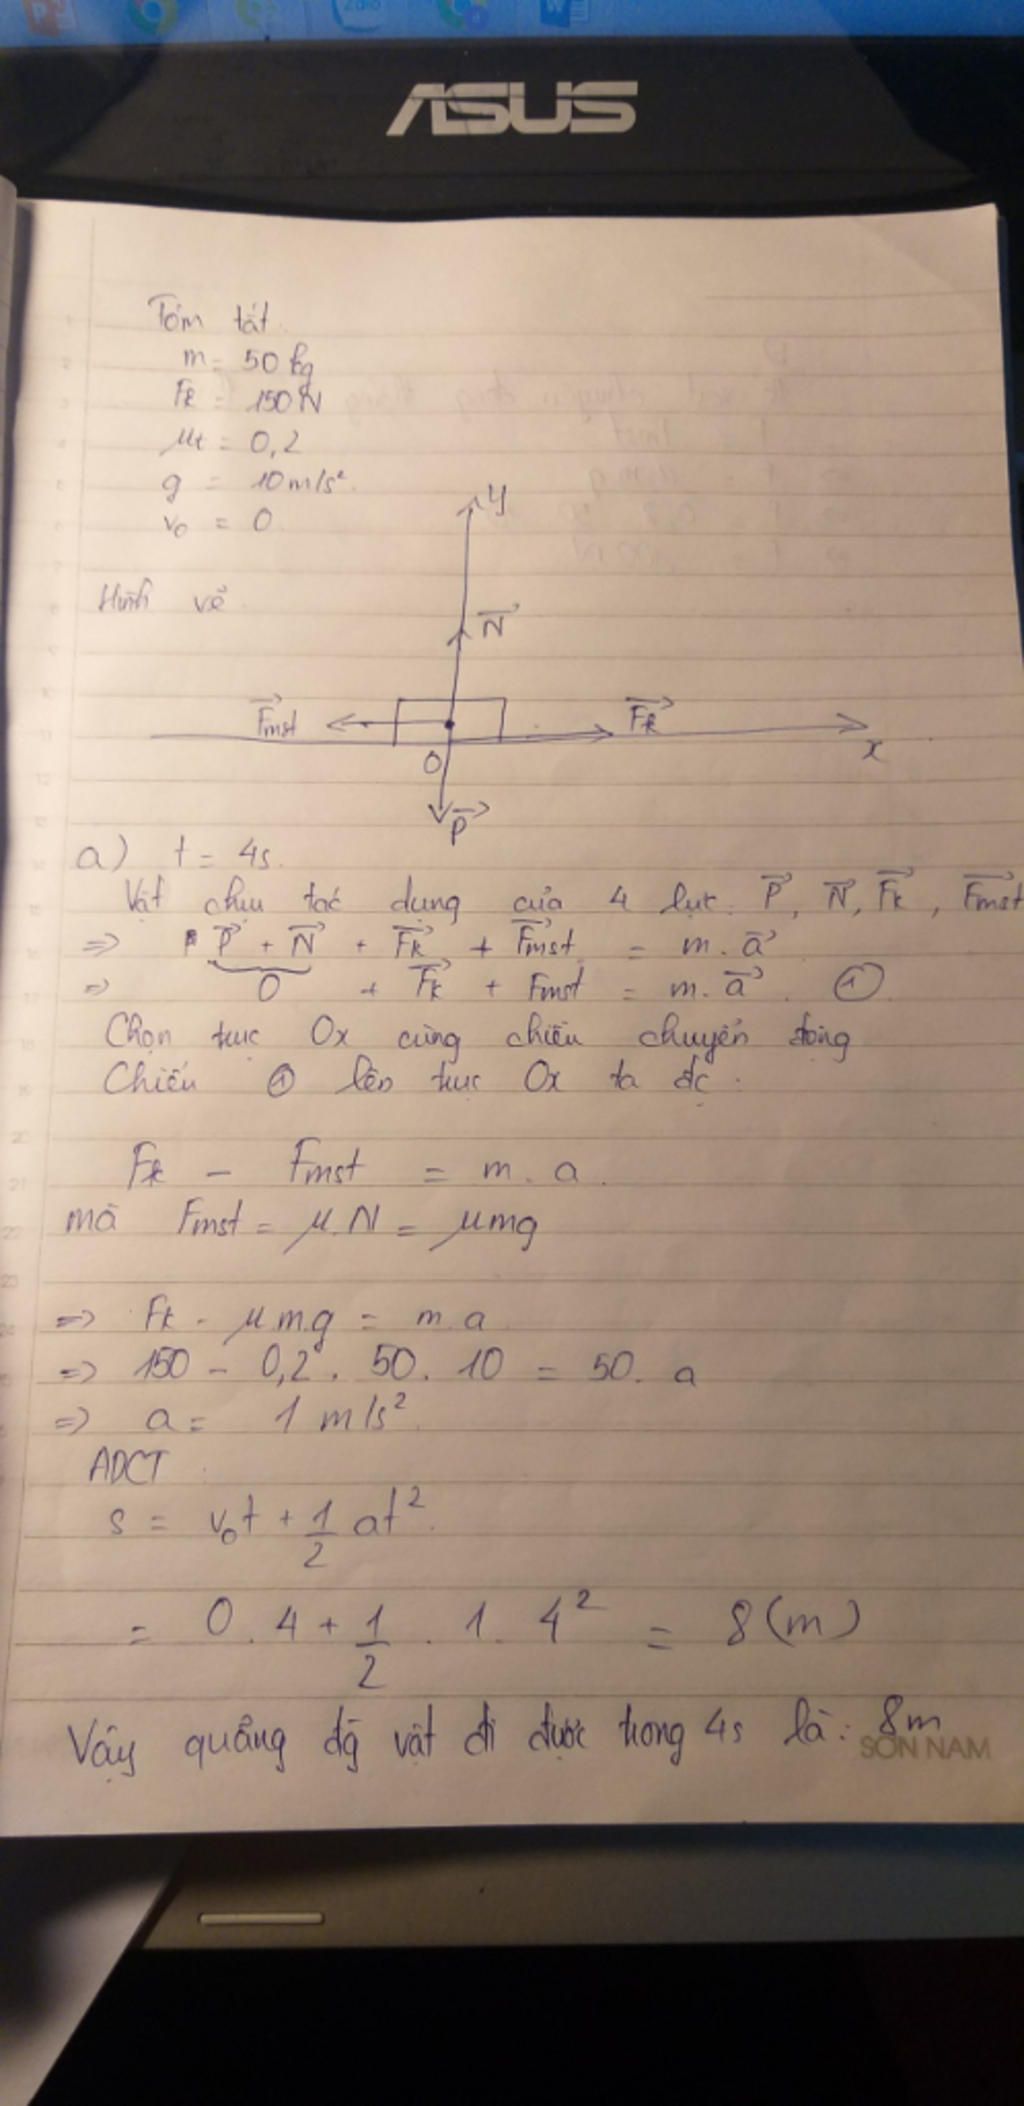 Zalo
W
ASUS
Tóm tắt.
m = 50 kg
Fk = 150N
μt = 0,2
g = 10m/s².
v₀ = 0
Hình vẽ
y
N
Fmst
Fk
O
x
P
a) t = 4s.
Vật chịu tác dụng của 4 lực: P, N, Fk, Fmst
=> P + N + Fk + Fmst = m.a
=> 0 + Fk + Fmst = m.a. ①
Chọn trục Ox cùng chiều chuyển động
Chiếu ① lên trục Ox ta đc :
Fk - Fmst = m.a.
mà Fmst = μ.N = μmg
=> Fk - μ m.g = m.a
=> 150 - 0,2. 50. 10 = 50. a
=> a = 1 m/s².
ADCT :
s = v₀t + 1/2 at².
= 0.4 + 1/2 . 1. 4² = 8(m)
Vậy quảng đg vật đi được trong 4s là: 8m
SON NAM